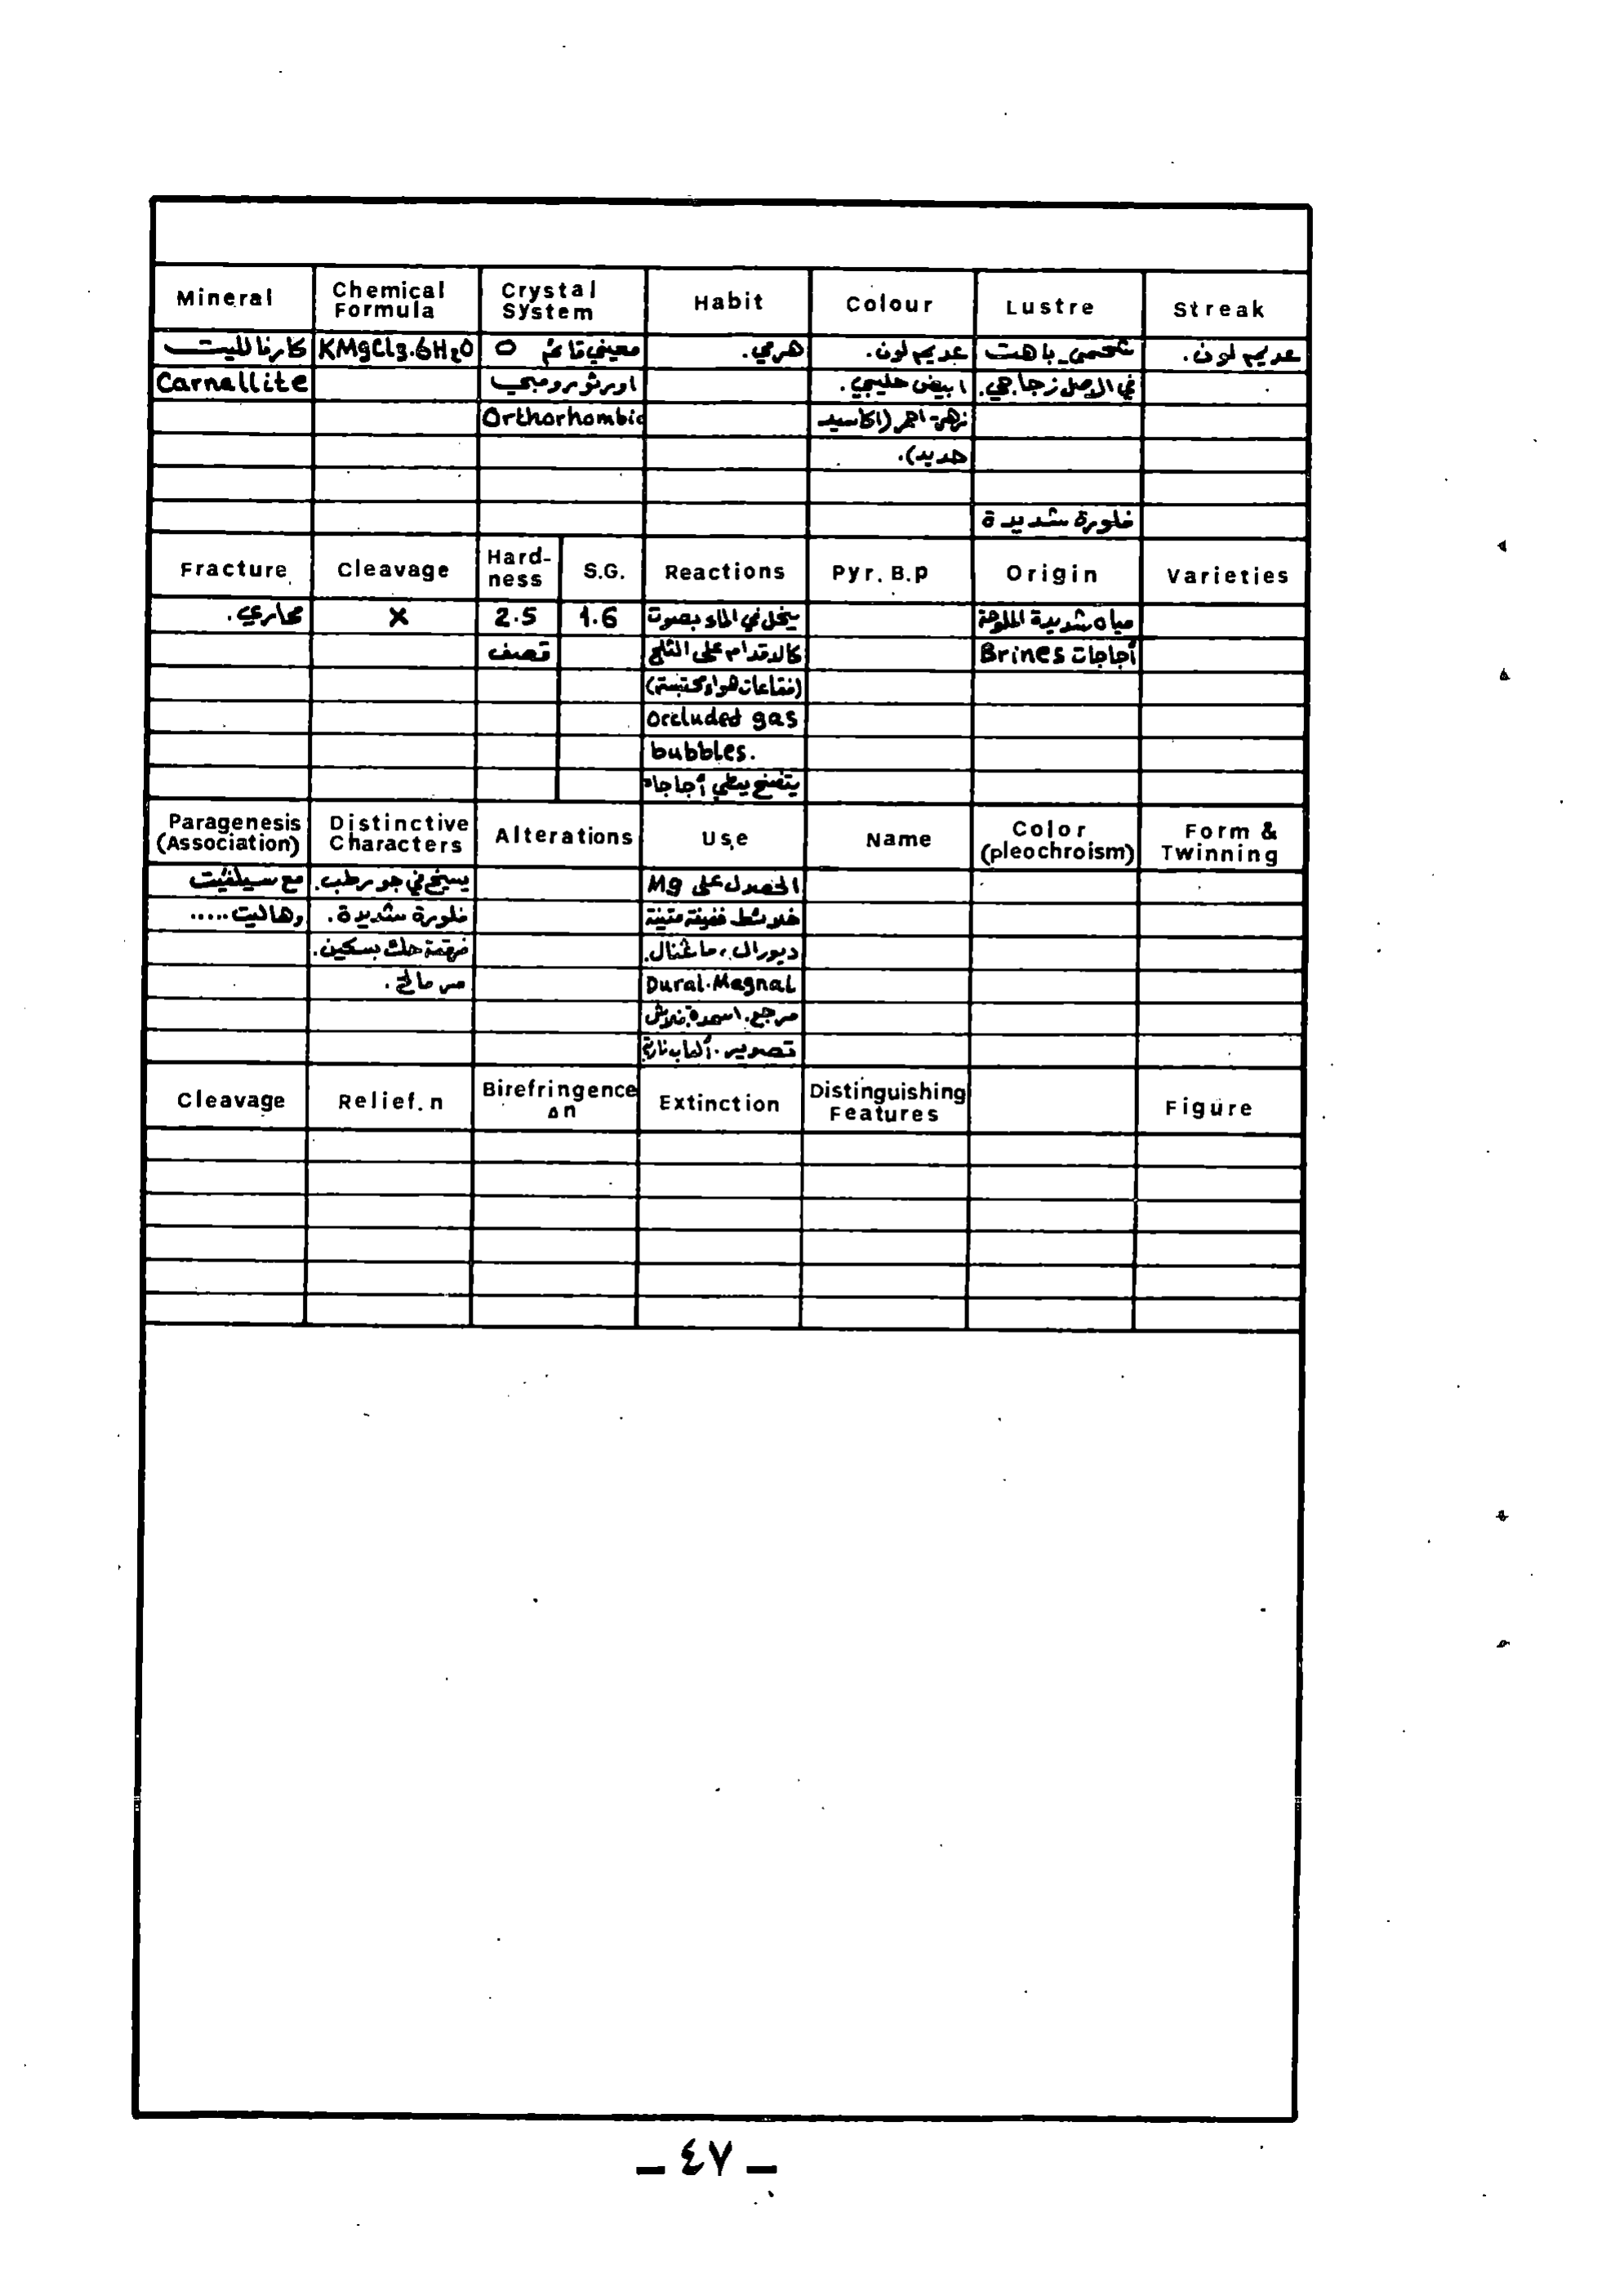 Mineral | Chemical Formula | Crystal System | Habit | Colour | Lustre | Streak
كارنالليت | KMgCl3.6H2O | معيني قائم O | هرمي. | عديم لون. | شحمي باهت | عديم لون.
Carnallite | اورثورومبي | ابيض حليبي. | في الاصل زجاجي.
Orthorhombic | زهر-احمر (اكاسيد
حديد).
فلورة شديدة
Fracture | Cleavage | Hard-ness | S.G. | Reactions | Pyr. B.p | Origin | Varieties
محاري. | X | 2.5 | 1.6 | ينحل في الماء بصوت | مياه شديدة الملوحة
قصف | كالاقدام على الثلج | أجاجات Brines
(فقاعات هواء محتبسة)
Occluded gas
bubbles.
يتضح يعطي أجاجاً
Paragenesis (Association) | Distinctive Characters | Alterations | Use | Name | Color (pleochroism) | Form & Twinning
مع سيلفيت | يسيح في جو رطب. | الحصول على Mg
وهاليت ..... | فلورة شديدة. | خلائط خفيفة متينة
فرقعة حك بسكين. | ديورال، ماغنال.
مر مالح. | Dural.Magnal
مرجع. اسمدة. فلاش
تصوير. ألعاب نارية
Cleavage | Relief. n | Birefringence Δn | Extinction | Distinguishing Features | Figure
_ ٤٧ _